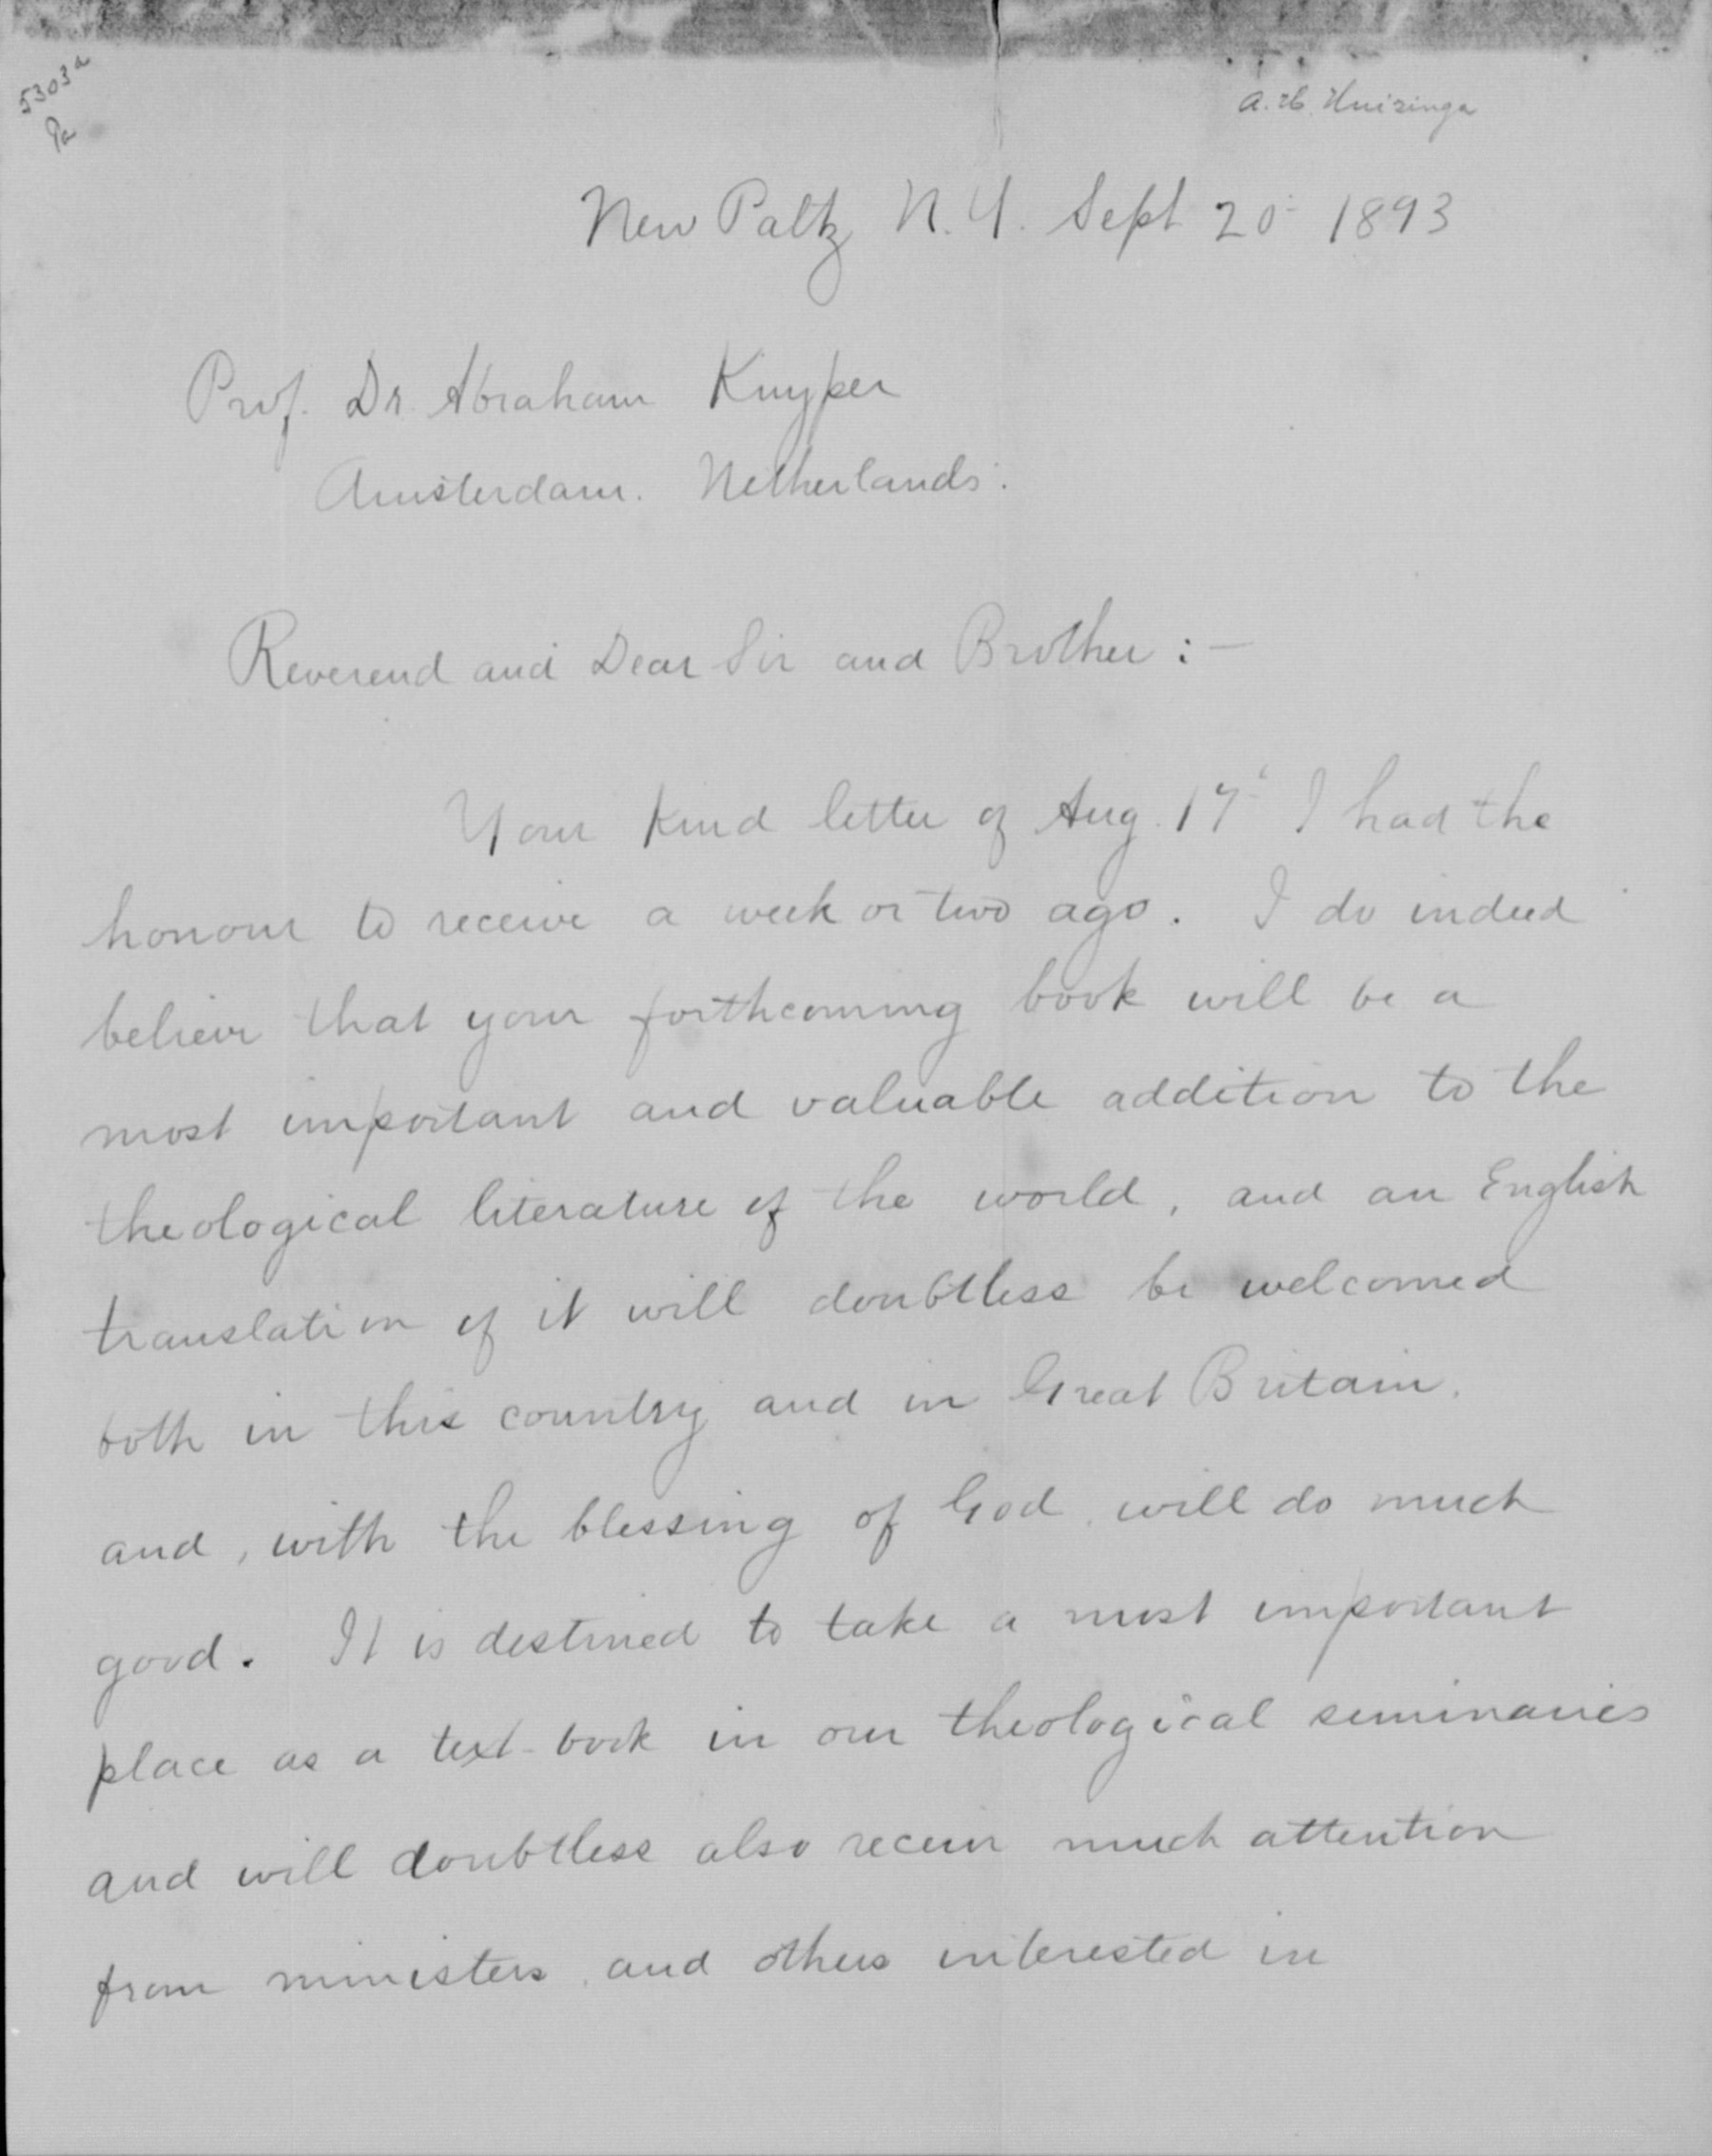 5303a
A. H. Huizinga
New Paltz N. Y. Sept 20 1893
Prof. Dr. Abraham Kuyper
Amsterdam. Netherlands.
Reverend and Dear Sir and Brother : —
Your kind letter of Aug. 17 I had the
honour to receive a week or two ago. I do indeed
believe that your forthcoming book will be a
most important and valuable addition to the
theological literature of the world, and an English
translation of it will doubtless be welcomed
both in this country and in Great Britain,
and, with the blessing of God, will do much
good. It is destined to take a most important
place as a text-book in our theological seminaries
and will doubtless also receive much attention
from ministers, and others interested in